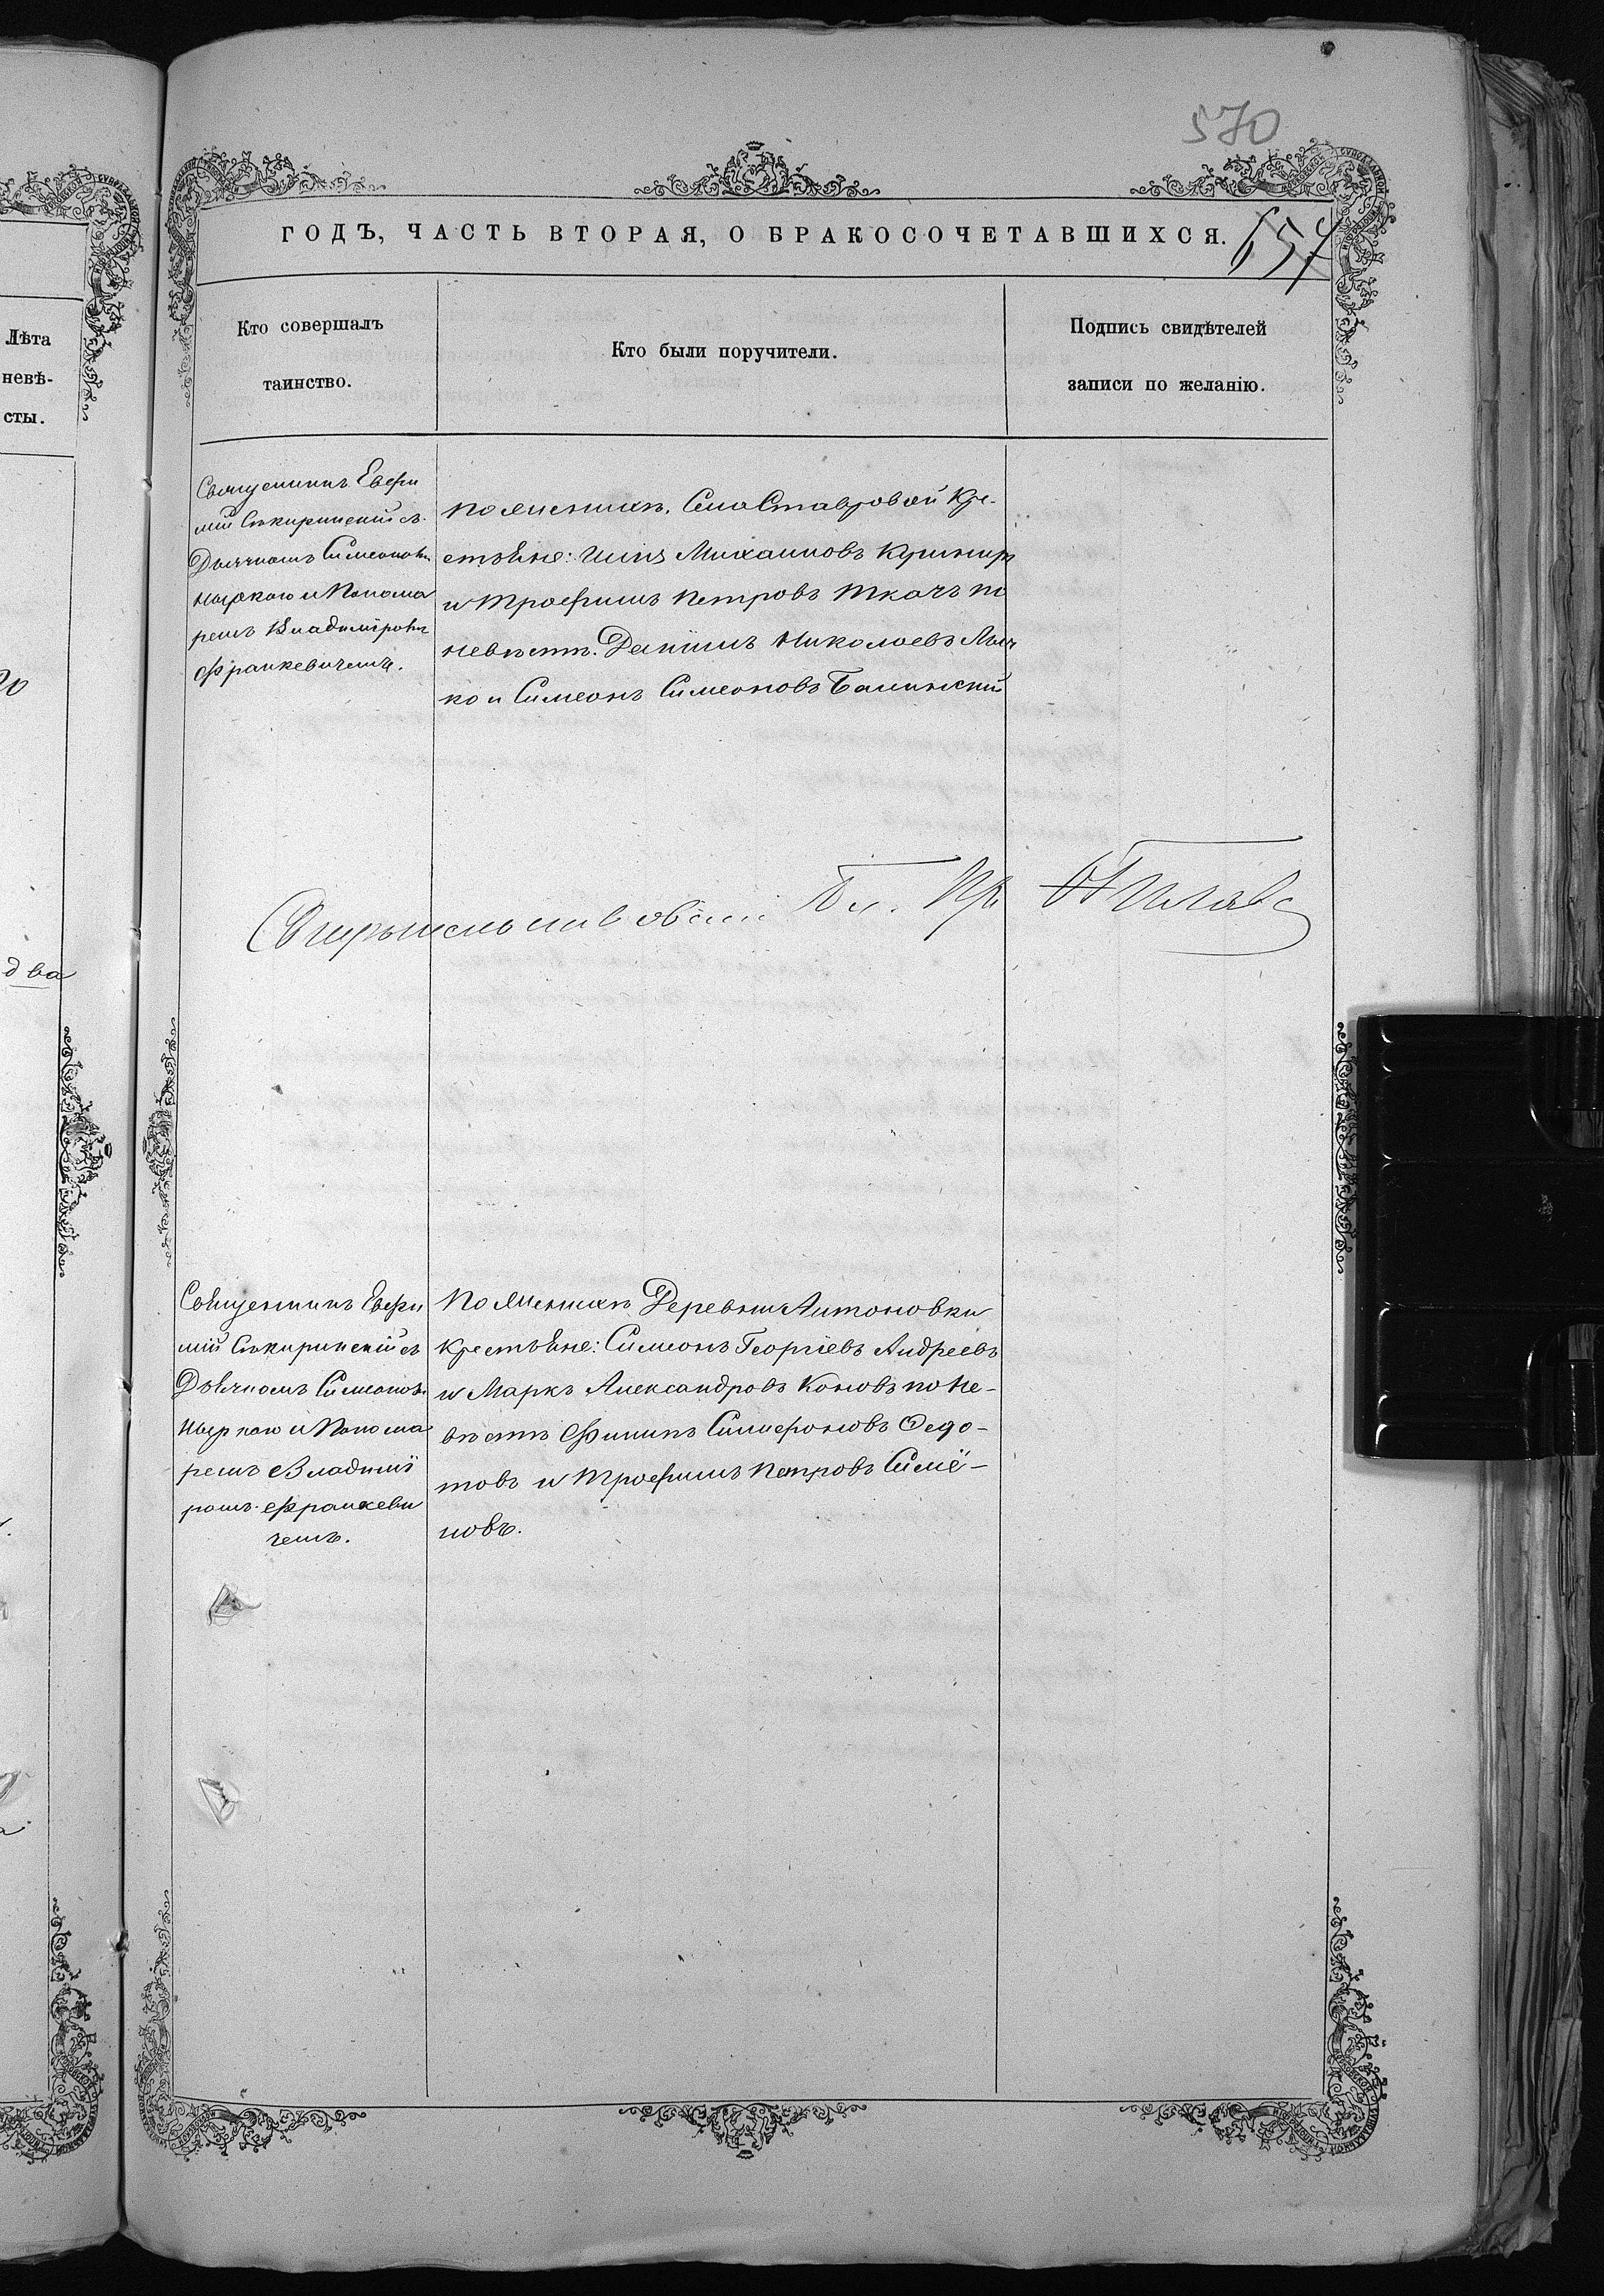 570
ГОДЪ, ЧАСТЬ ВТОРАЯ, О БРАКОСОЧЕТАВШИХСЯ.
657
Лѣта
невѣ-
сты.
Кто совершалъ
таинство.
Кто были поручители.
Подпись свидѣтелей
записи по желанію.
два
Священникъ Евѳи
мій Сѣкиринскій съ
Дьячкомъ Симеоном
и Понома
ремъ Владиміром
Франкевичемъ.
По женихѣ, Села Ставровой Кре-
стьяне: Илія Михаиловъ Кушнир
и Трофимъ Петровъ Ткачъ по
невѣстѣ: Даніилъ Николаевъ
ко и Симеонъ Симеоновъ Балинскій
Бл. Пр
Священникъ Евѳи
мій Сѣкиринскій съ
Дьячкомъ Симеоном
и Понома
ремъ Владимі
ромъ Франкеви
чемъ.
По женихѣ Деревни Антоновки
Крестьяне: Симеонъ Георгіевъ Андреевъ
и Маркъ Александровъ Коновъ по не-
вѣстѣ Филипъ Симфоновъ Ѳедо-
товъ и Трофимъ Петровъ Симё-
новъ.